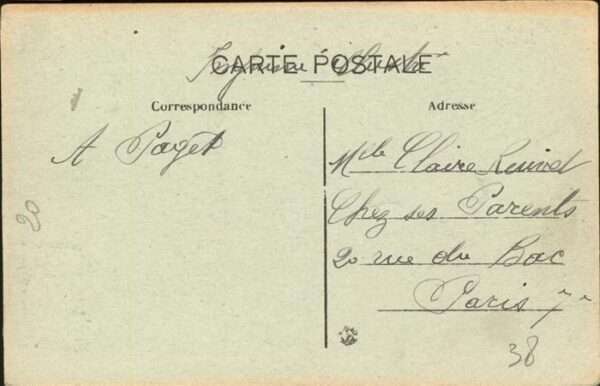 CARTE POSTALE
Correspondance
Adresse
A Paget
Mlle Claire
Chez ses Parents
20 rue du Bac
Paris 7e
20
38